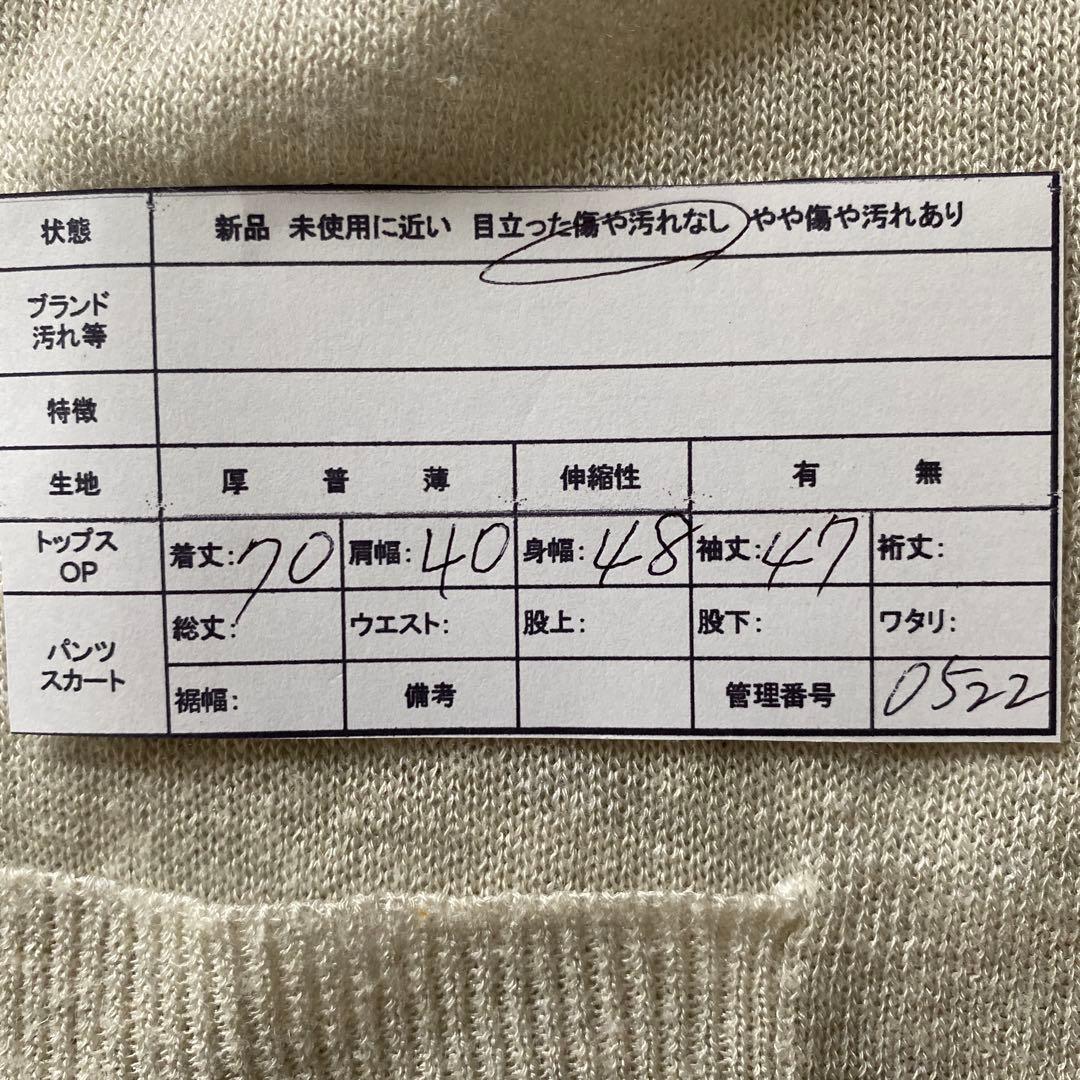 状態 新品 未使用に近い 目立った傷や汚れなし やや傷や汚れあり
ブランド
汚れ等
特徴
生地 厚 普 薄 伸縮性 有 無
トップス
OP
着丈:70 肩幅:40 身幅:48 袖丈:47 裄丈:
パンツ
スカート
総丈: ウエスト: 股上: 股下: ワタリ:
裾幅: 備考 管理番号 0522